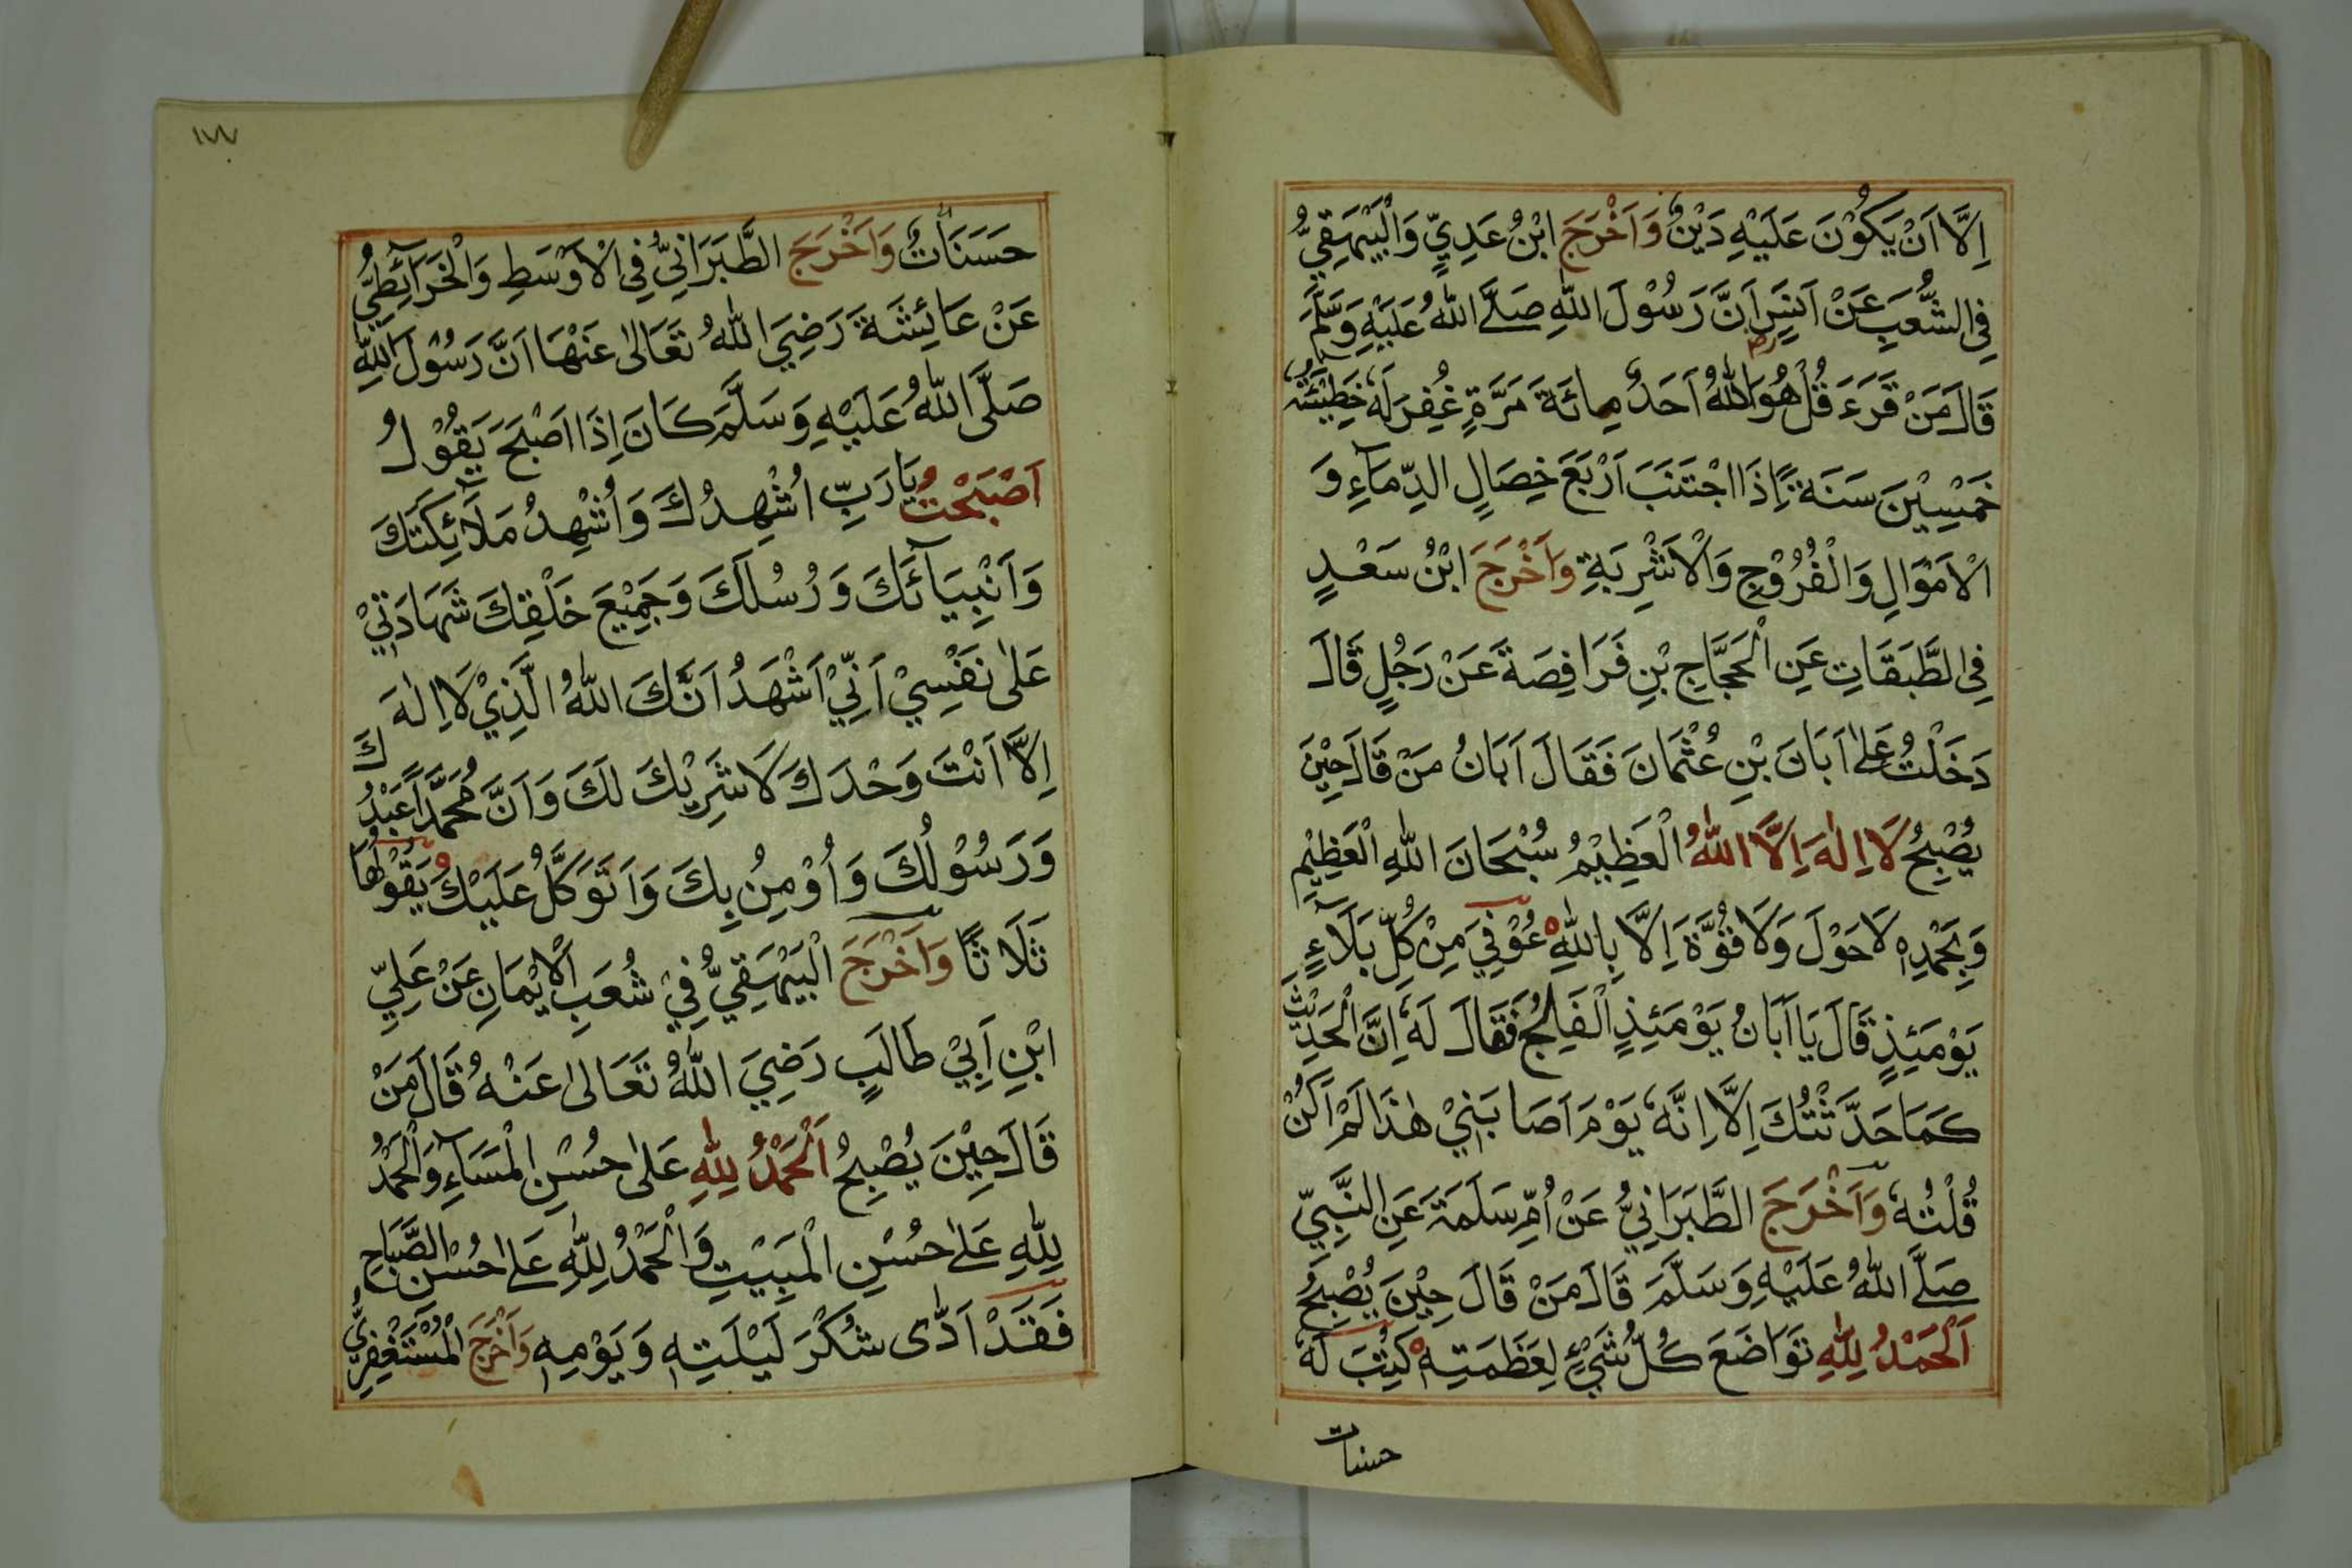 اِلَّا اَنْ يَكُوْنَ عَلَيْهِ دَيْنٌ وَاَخْرَجَ ابْنُ عَدِيٍّ وَالْبَيْهَقِيُّ
فِي الشُّعَبِ عَنْ اَنَسٍ اَنَّ رَسُوْلَ اللّٰهِ صَلَّى اللّٰهُ عَلَيْهِ وَسَلَّمَ
قَالَ مَنْ قَرَءَ قُلْ هُوَ اللّٰهُ اَحَدٌ مِائَةَ مَرَّةٍ غُفِرَ لَهٗ خَطِيْئَتُهٗ
خَمْسِيْنَ سَنَةً اِذَا اجْتَنَبَ اَرْبَعَ خِصَالٍ الدِّمَآءِ وَ
الْاَمْوَالِ وَالْفُرُوْجِ وَالْاَشْرِبَةِ وَاَخْرَجَ ابْنُ سَعْدٍ
فِي الطَّبَقَاتِ عَنِ الْحَجَّاجِ بْنِ فَرَافِصَةَ عَنْ رَجُلٍ قَالَ
دَخَلْتُ عَلٰى اَبَانَ بْنِ عُثْمَانَ فَقَالَ اَبَانُ مَنْ قَالَ حِيْنَ
يُصْبِحُ لَا اِلٰهَ اِلَّا اللّٰهُ الْعَظِيْمُ سُبْحَانَ اللّٰهِ الْعَظِيْمِ
وَبِحَمْدِهٖ لَا حَوْلَ وَلَا قُوَّةَ اِلَّا بِاللّٰهِ عُوْفِيَ مِنْ كُلِّ بَلَآءٍ
يَوْمَئِذٍ قَالَ يَا اَبَانُ يَوْمَئِذٍ الْفَالِجُ فَقَالَ لَهٗ اِنَّ الْحَدِيْثَ
كَمَا حَدَّثْتُكَ اِلَّا اِنَّهٗ يَوْمَ اَصَابَنِيْ هٰذَا لَمْ اَكُنْ
قُلْتُهٗ وَاَخْرَجَ الطَّبَرَانِيُّ عَنْ اُمِّ سَلَمَةَ عَنِ النَّبِيِّ
صَلَّى اللّٰهُ عَلَيْهِ وَسَلَّمَ قَالَ مَنْ قَالَ حِيْنَ يُصْبِحُ
اَلْحَمْدُ لِلّٰهِ تَوَاضَعَ كُلُّ شَيْءٍ لِعَظَمَتِهٖ كُتِبَ لَهٗ
حسنات
١٧٧
حَسَنَاتٌ وَاَخْرَجَ الطَّبَرَانِيُّ فِي الْاَوْسَطِ وَالْخَرَآئِطِيُّ
عَنْ عَائِشَةَ رَضِيَ اللّٰهُ تَعَالٰى عَنْهَا اَنَّ رَسُوْلَ اللّٰهِ
صَلَّى اللّٰهُ عَلَيْهِ وَسَلَّمَ كَانَ اِذَا اَصْبَحَ يَقُوْلُ
اَصْبَحْتُ يَا رَبِّ اُشْهِدُكَ وَاُشْهِدُ مَلَآئِكَتَكَ
وَاَنْبِيَآئَكَ وَرُسُلَكَ وَجَمِيْعَ خَلْقِكَ شَهَادَتِيْ
عَلٰى نَفْسِيْ اَنِّيْ اَشْهَدُ اَنَّكَ اللّٰهُ الَّذِيْ لَا اِلٰهَ
اِلَّا اَنْتَ وَحْدَكَ لَا شَرِيْكَ لَكَ وَاَنَّ مُحَمَّدًا عَبْدُكَ
وَرَسُوْلُكَ وَاُوْمِنُ بِكَ وَاَتَوَكَّلُ عَلَيْكَ يَقُوْلُهَا
ثَلَاثًا وَاَخْرَجَ الْبَيْهَقِيُّ فِيْ شُعَبِ الْاِيْمَانِ عَنْ عَلِيِّ
ابْنِ اَبِيْ طَالِبٍ رَضِيَ اللّٰهُ تَعَالٰى عَنْهُ قَالَ مَنْ
قَالَ حِيْنَ يُصْبِحُ اَلْحَمْدُ لِلّٰهِ عَلٰى حُسْنِ الْمَسَآءِ وَالْحَمْدُ
لِلّٰهِ عَلٰى حُسْنِ الْمَبِيْتِ وَالْحَمْدُ لِلّٰهِ عَلٰى حُسْنِ الصَّبَاحِ
فَقَدْ اَدّٰى شُكْرَ لَيْلَتِهٖ وَيَوْمِهٖ وَاَخْرَجَ الْمُسْتَغْفِرِيُّ